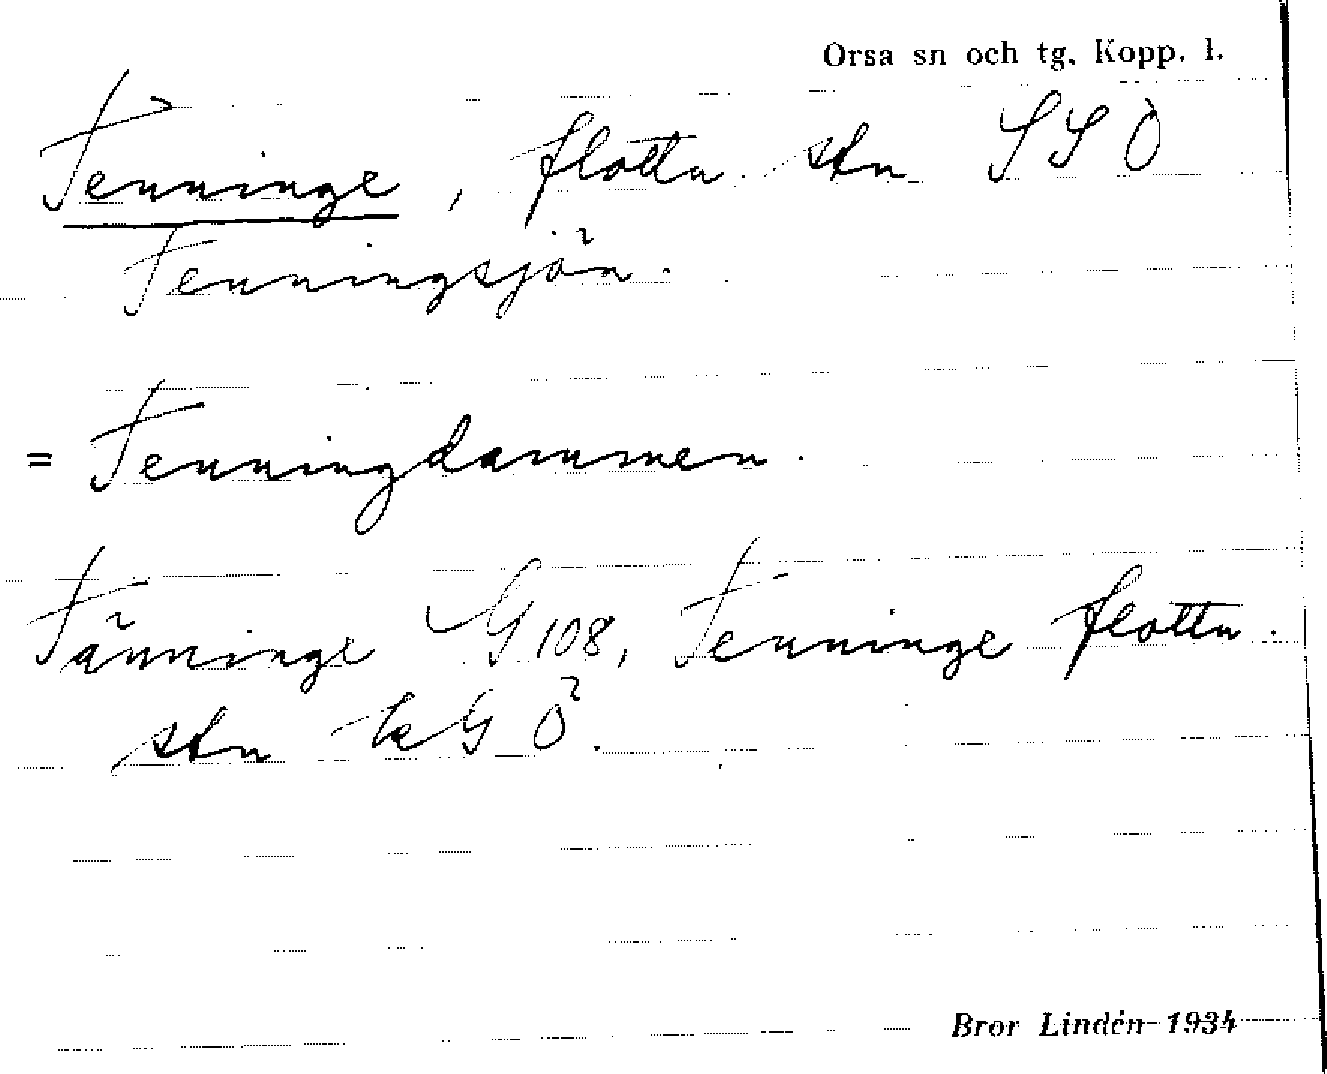 Orsa sn och tg. Kopp. l.
Tenninge, flottn. stn SSÖ
Tenningsjön.
= Tenningdammen.
Tänninge G 108, Tenninge flottn.
stn kG Ö.
Bror Lindén 1934